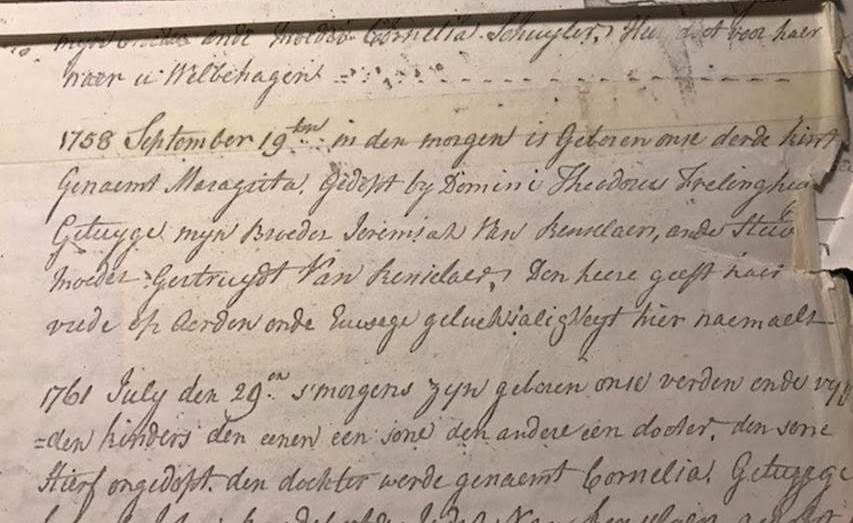 myn ende moeder Cornelia Schuyler, Heer doet voor haer
naer u Welbehagen
1758 September 19ten in den morgen is Geboren onse derde kint
Genaemt Maragrita. Gedopt by Domini Theodorus Frelinghuy
Getuyge myn Broeder Jeremiah Van Renselaer, ande Stief
Moeder Gertruydt Van Renselaer, Den heere geeft haer
vrede op Aerden ende Euwege geluckzaligheyt hier naemaels
1761 July den 29en s'morgens zyn geboren onse verden ende vyf
=den kinders den eenen een sone den andere een docter, den sone
Stierf ongedopt. den dochter werde genaemt Cornelia. Getuygge